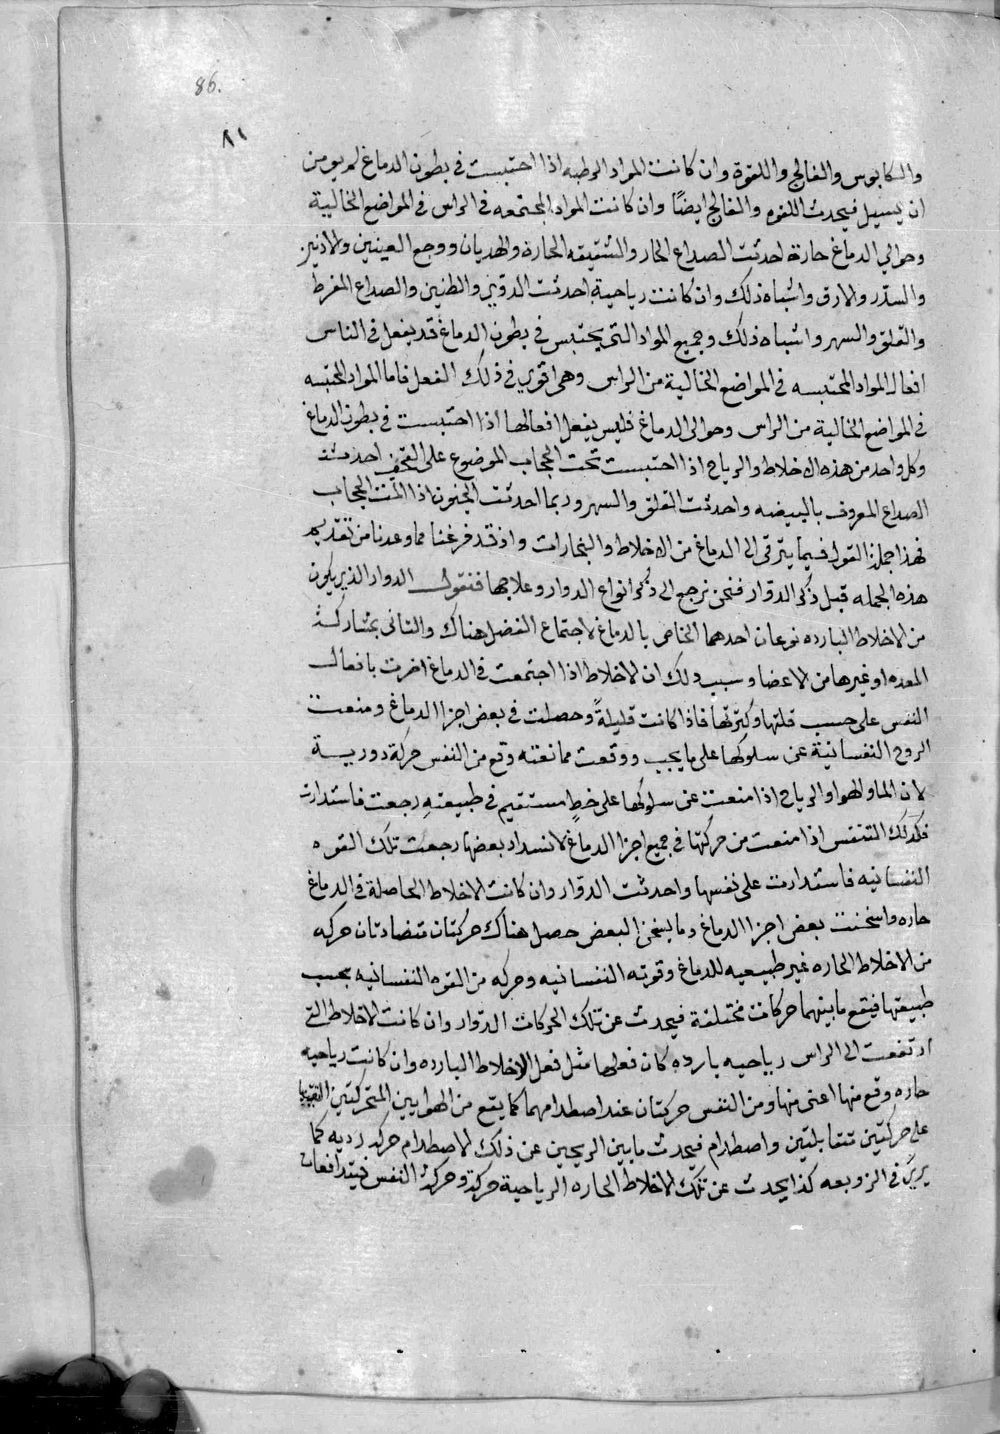 86.
٨٦
والكابوس والفالج واللقوة وان كانت المواد الرطبه اذا احتبست في بطون الدماغ لم يومن
ان يسيل فيحدث اللقوه والفالج ايضًا وان كانت المواد المجتمعه في الراس في المواضع الخالية
وحوالي الدماغ حارة احدثت الصداع الحار والشقيقه الحارة والهديان ووجع العينين والاذنين
والسدّر والارق واشباه ذلك وان كانت رياحية احدثت الدوّي والطنين والصداع المفرط
والقلق والسهر واشباه ذلك وجميع المواد التي يحتبس في بطون الدماغ قد يفعل في الناس
افعال المواد المحتبسه في المواضع الخالية من الراس وهي اقوي في ذلك الفعل فاما المواد المحتبسه
في المواضع الخالية من الراس وحوالى الدماغ فليس يفعل افعالها اذا احتبست في بطون الدماغ
وكل واحد من هذه الاخلاط والرياح اذا احتبست تحت الحجاب الموضوع على القحف احدثت
الصداع المعروف بالبيضه واحدثت القلق والسهر وربما احدثت الجنون اذا المت الحجاب
فهذا جملة القول فيما يترقى الى الدماغ من الاخلاط والبخارات واذ قد فرغنا مما وعدنا من تقديم
هذه الجمله قبل ذكر الدوّار فنحن نرجع الى ذكر انواع الدوار وعلاجها فنقول الدوار الذي يكون
من الاخلاط البارده نوعان احدهما الخاص بالدماغ لاجتماع الفضل هناك والثاني بمشاركة
المعده او غيرها من الاعضا وسبب ذلك ان الاخلاط اذا اجتمعت في الدماغ اضرت بافعال
النفس على حسب قلتها وكثرتها فاذا كانت قليلةً وحصلت في بعض اجزا الدماغ ومنعت
الروح النفسانية عن سلوكها على ما يجب ووقعت ممانعته وقع من النفس حركة دورية
لان الما والهوا والرياح اذا منعت عن سلوكها على خطٍ مستقيم في طبيعتهِ رجعت فاستدارت
فكذلك التنفس اذا منعت من حركتها في جميع اجزا الدماغ لانسداد بعضها رجعت تلك القوه
النفسانيه فاستدارت على نفسها واحدثت الدوّار وان كانت الاخلاط الحاصلة في الدماغ
حاره واسخنت بعض اجزا الدماغ وما يسخن البعض حصل هناك حركتان متضادتان حركه
من الاخلاط الحاره غير طبيعيه للدماغ وقوته النفسانيه وحركه من القوه النفسانيه بحسب
طبيعتها فيقع ما بينهما حركات مختلفة فيحدث عن تلك الحركات الدوّار وان كانت الاخلاط التي
ارتفعت الى الراس رياحيه بارده كان فعلها مثل فعل الاخلاط البارده وان كانت رياحيه
حاره وقع منها اعنى منها ومن النفس حركتان عند اصطدامهما كما يقع من الهوايين المتحركتين
على حركتين متقابلتين واصطدام فيحدث ما بين الريحين عن ذلك الاصطدام حركه رديه كما
يرى في الزوبعه كذا يحدث عن تلك الاخلاط الحاره الرياحية حركة وحركة النفس